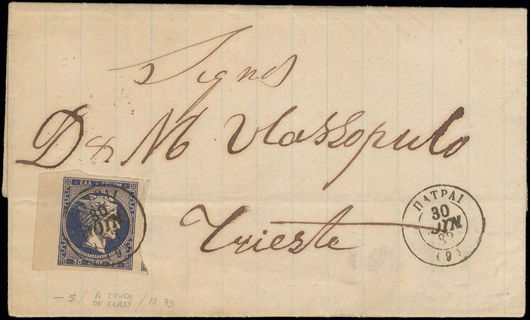 Signor
D. & M. Vlassopulo
Trieste
ΠΑΤΡΑΙ
30
(9)
30
— $ / A TOUCH OF CLASS / 10-93